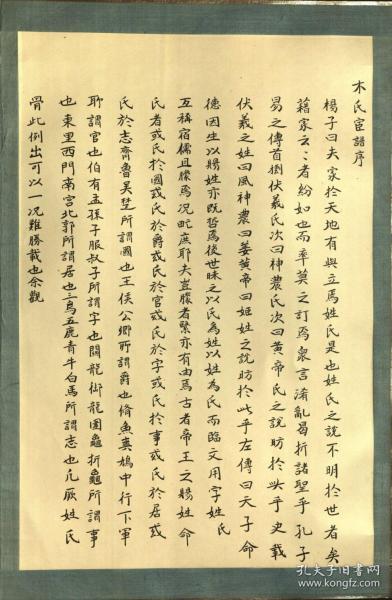 木氏宦譜序
楊子曰夫家於天地有與立焉姓氏是也姓氏之說不明於世者矣
藉家云云者紛如也而率莫之訂焉衆言淆亂曷折諸聖乎孔子
易之傳首倒伏羲氏次曰神農氏次曰黃帝氏之說昉於此乎史載
伏羲之姓曰風神農曰姜黃帝曰姬姓之說昉於此乎左傳曰天子命
德因生以賜姓亦既哲焉後世昧之以氏為姓以姓為氏而臨文用字姓氏
互稱宿儒且朦焉況甿庶耶夫豈朦者繄亦有由焉古者帝王之賜姓命
氏者或氏於國或氏於爵或氏於官或氏於字或氏於事或氏於居或
氏於志齊魯吳楚所謂國也王侯公卿所謂爵也脩魚爽鳩中行下軍
所謂官也伯有孟孫子服叔子所謂字也關龍御龍國龜折龜所謂事
也東里西門南宮北郭所謂居也三烏五鹿青牛白馬所謂志也凡厥姓氏
骨此例出可以一況難勝載也余觀
孔夫子旧书网
www.kongfz.com